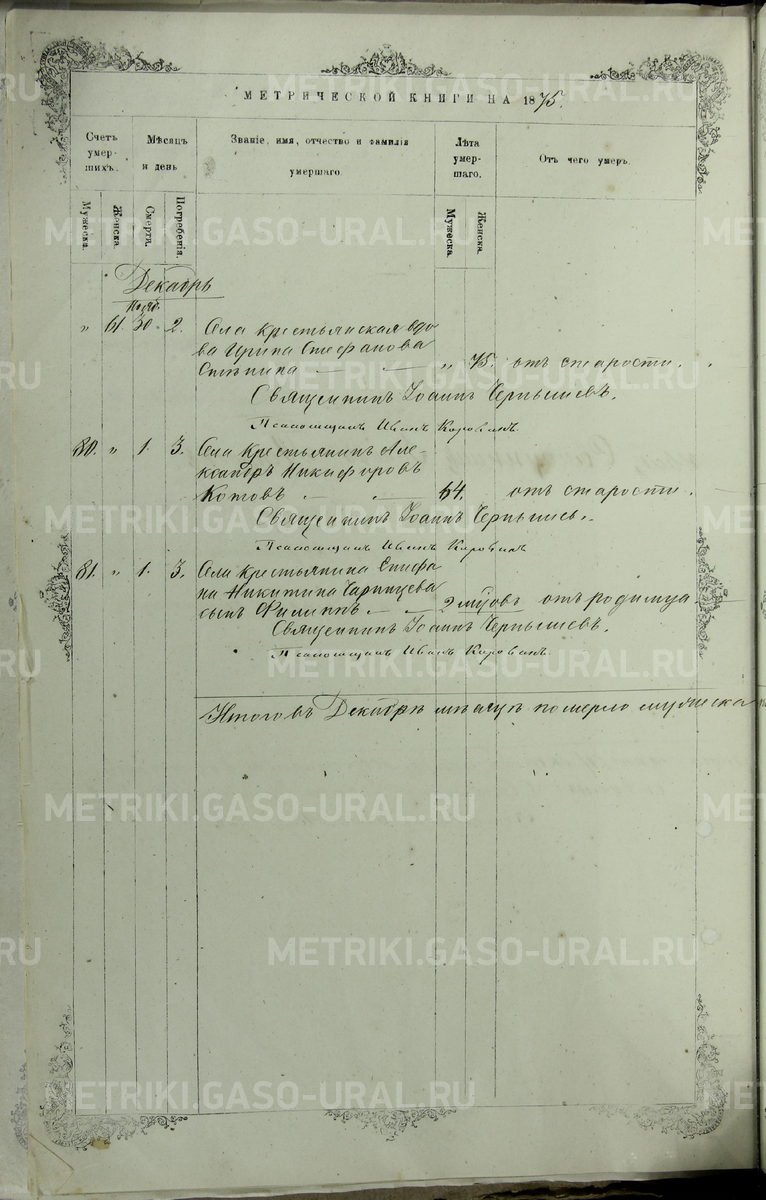 МЕТРИЧЕСКОЙ КНИГИ НА 1875.
Счетъ умер- шихъ.
Мѣсяцъ и день
Званіе, имя, отчество и фамилія умершаго.
Лѣта умер- шаго.
Отъ чего умеръ.
Мужеска.
Женска.
Смерти.
Погребенія.
Мужеска.
Женска.
Декабрь
Нояб.
" 61. 30. 2. Села крестьянская вдо
ва Ирина Стефанова
" 75. отъ старости.
Священникъ Іоаннъ Чернышевъ.
Псаломщикъ Иванъ Коровинъ
80. " 1. 3. Села крестьянинъ Але-
ксандръ Никифоровъ
Котовъ 64. отъ старости.
Священникъ Іоаннъ Чернышевъ.
Псаломщикъ Иванъ Коровинъ
81. " 1. 3. Села крестьянина Епифа
на Никитина
сынъ Филиппъ 2 мцовъ отъ родимца.
Священникъ Іоаннъ Чернышевъ.
Псаломщикъ Иванъ Коровинъ.
Итого въ Декабрѣ мѣсяцѣ померло мужеска
METRIKI.GASO-URAL.RU